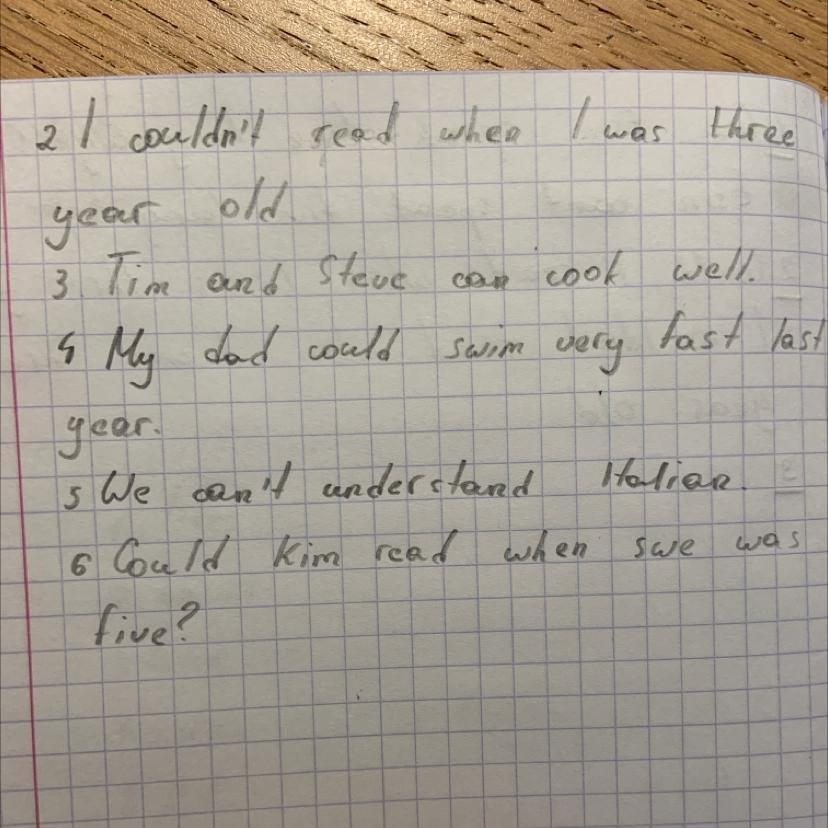 2 I couldn't read when I was three
year old.
3 Tim and Steve can cook well.
4 My dad could swim very fast last
year.
5 We can't understand Italian.
6 Could Kim read when swe was
five?